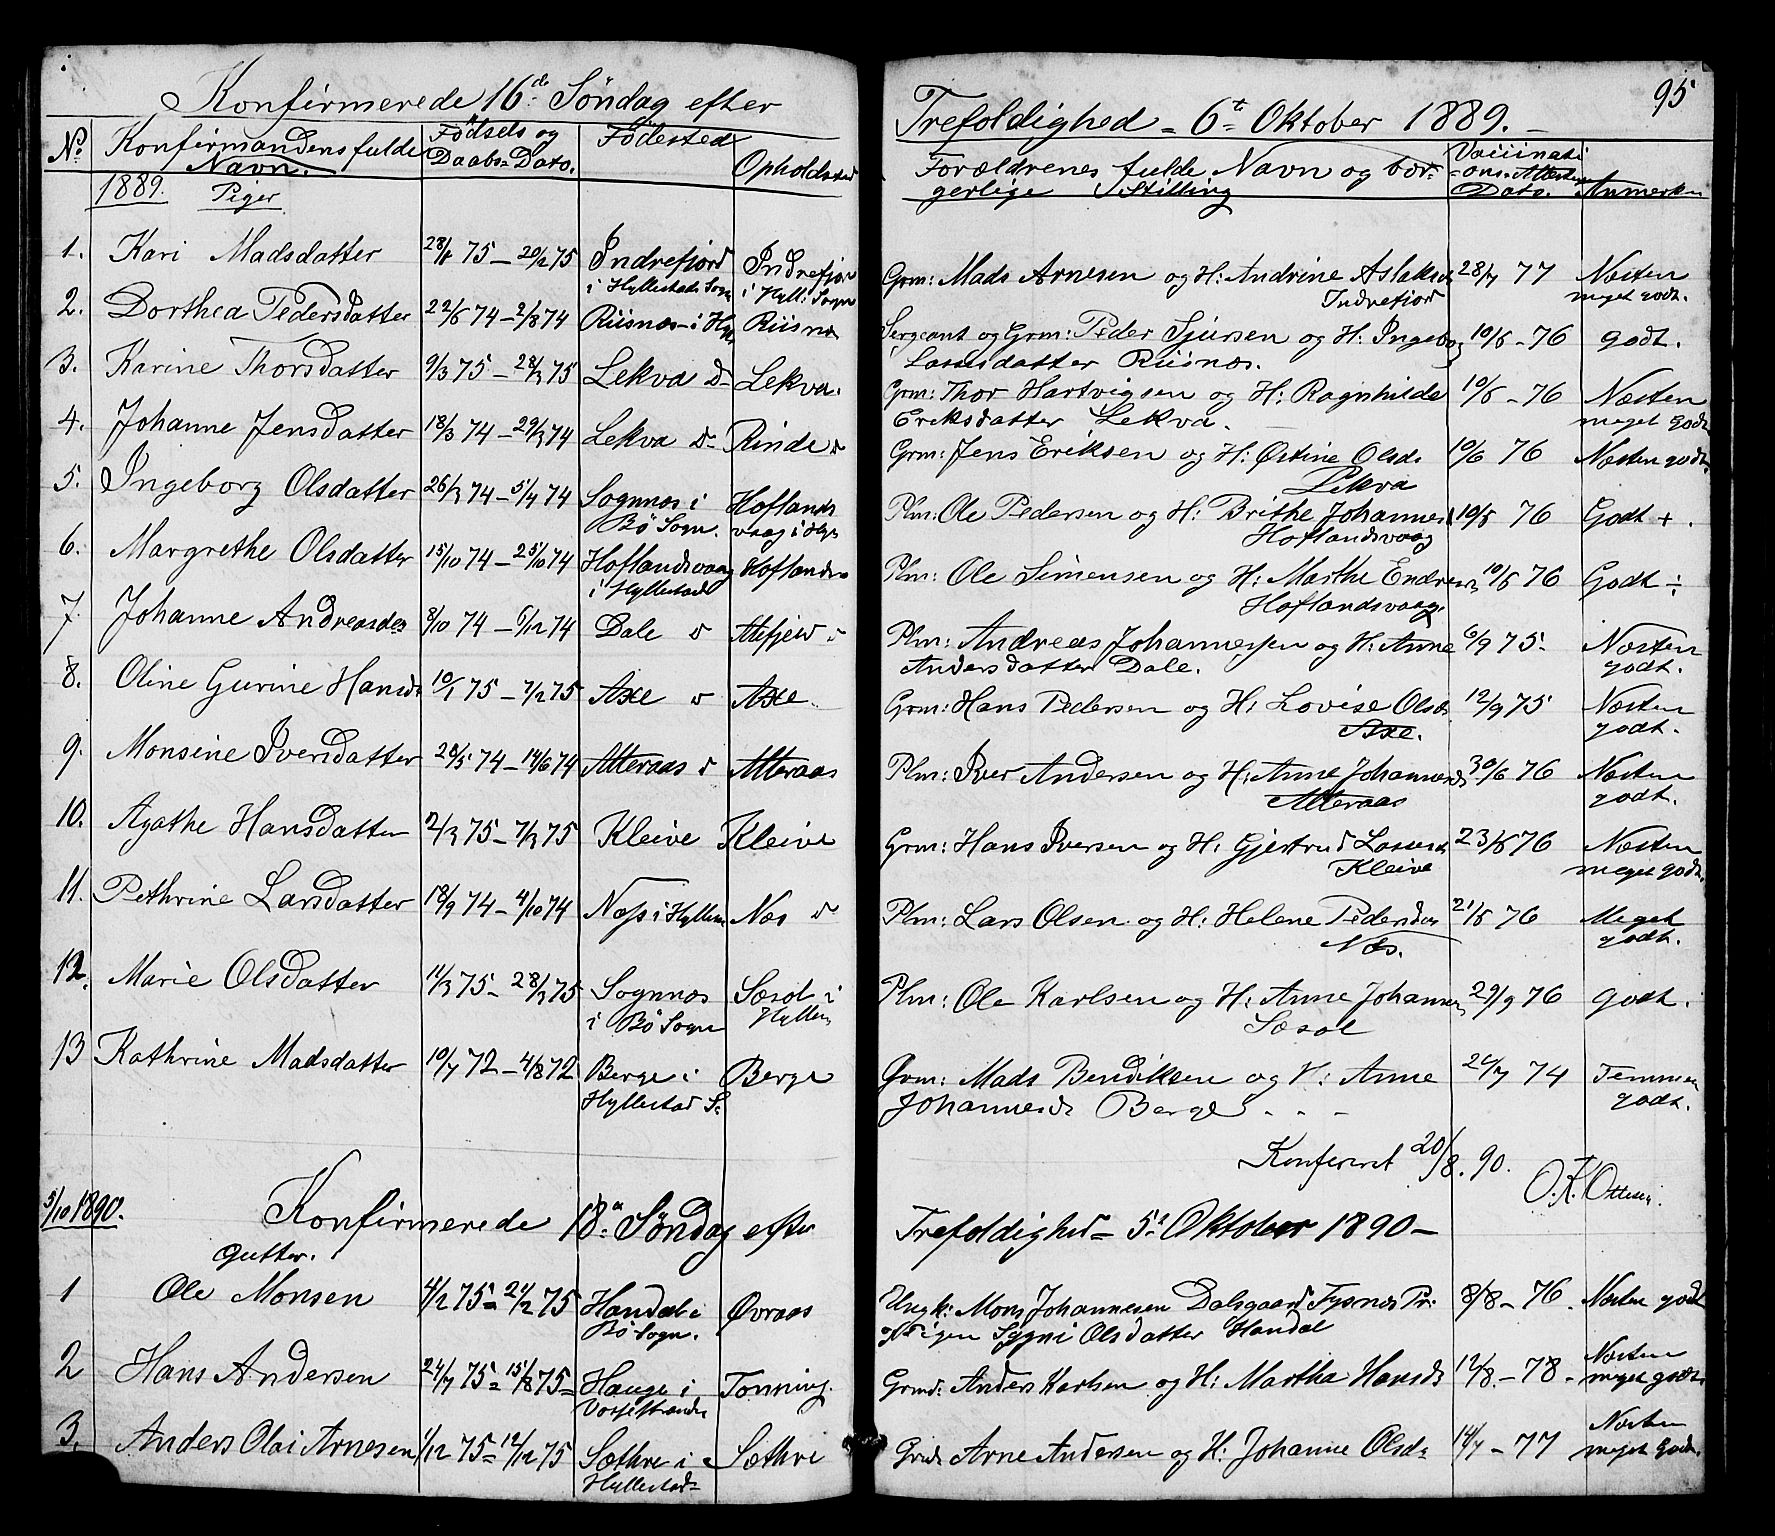 95
Konfirmerede 16de Søndag efter Trefoldighed - 6te Oktober 1889. -
No. Konfirmandens fulde Navn. Fødsels og Daabs-Dato. Fødested Opholdssted Forældrenes fulde Navn og borgerlige Stilling Dato. Anmerkn
1889. Piger
1. Kari Madsdatter 75 - 75 Indrefjord i Hyllestads Sogn Indrefjord i Hyll: Sogn Grm: Mads Arnesen og H: Andrine Aslaksd Indrefjord 28/7 77 Næsten meget godt.
2. Dorthea Pedersdatter 22/6 74 - 2/8 74 Riisnæs - i Hyl Riisnæs Sergeant og Grm: Peder Sjursen og H: Ingeborg Lassesdatter Riisnæs. 10/6 - 76 godt.
3. Karine Thorsdatter 9/3 75 - 28/3 75 Lekva d- Lekva. Grm: Thor Hartvigsen og H: Ragnhilde Eriksdatter Lekva. 10/6 - 76 Næsten meget godt
4. Johanne Jensdatter 18/3 74 - 29/3 74 Lekva d- Rinde d Grm: Jens Eriksen og H: Østine Olsd. Lekva 10/6 76 Næsten godt.
5. Ingeborg Olsdatter 26/3 74 - 5/4 74 Sognnæs i Bø Sogn. Hoflandsvaag i Hyl Plm: Ole Pedersen og H: Brithe Johannesd Hoflandsvaag 10/6 76 Godt +.
6. Margrethe Olsdatter 15/10 74 - 25/10 74 Hoflandsvaag i Hyllestad Hoflands Plm: Ole Simensen og H: Marthe Endresd Hoflandsvaag. 10/6 76 Godt ÷
7. Johanne Andreasda 8/10 74 - 6/12 74 Dale d d Plm: Andreas Johannessen og H: Anne Andersdatter Dale. 6/9 75- Næsten godt.
8. Oline Gurine Hansd. 10/1 75 - 7/2 75 Axe d Axe. Grm: Hans Pedersen og H: Lovise Olsd. Axe. 12/9 75 Næsten godt.
9. Monsine Iversdatter 28/5 74 - 14/6 74 Atteraas d Atteraas Plm: Iver Andersen og H: Anne Johannesd Atteraas 30/6 76 Næsten godt.
10. Agathe Hansdatter 2/3 75 - 7/3 75 Kleive Kleive Grm: Hans Iversen og H: Gjertrud Lassesd Kleive 23/6 76 Næsten meget godt.
11. Pethrine Larsdatter 18/9 74 - 4/10 74 Næss i Hylles Næs d Plm: Lars Olsen og H: Helene Pedersda Næs. 21/6 76 Meget godt.
12. Marie Olsdatter 14/3 75 - 28/3 75 Sognnæs i Bø Sogn Sæsol i Hylles Plm: Ole Karlsen og H: Anne Johannes Sæsol 29/9 76 godt.
13 Kathrine Madsdatter 10/7 72 - 4/8 72 Berge i Hyllestad S. Berge Grm: Mads Bendiksen og H: Anne Johannesd Berge - - - 74 Temmen godt.
Konfereret 20/8. 90. O. K. Ottesen.
5/10 1890. Konfirmerede 18de Søndag efter Trefoldighed - 5te Oktober 1890 -
Gutter.
1 Ole Monsen 4/12 75 = 75 Handal i Bø Sogn. Øvraas Ungk: Mons Johannesen Dalsgaard Fysnæs Pr. og Pigen Sygni Olsdatter Handal 8/8 - 76. Næsten godt
2 Hans Andersen 24/7 75 = 15/8 75 = Hauge i Vossestranden Tonning. Grmd. Anders Karlsen og H: Martha Hansd. 12/8. - 78 - Næsten meget godt.
3. Anders Olai Arnesen 1/12 75 = 12/12 75 Sæthre i Hyllestad Sæthre Grmd Arne Andersen og H: Johanne Olsd. 14/7 - 77 Næsten meget godt.